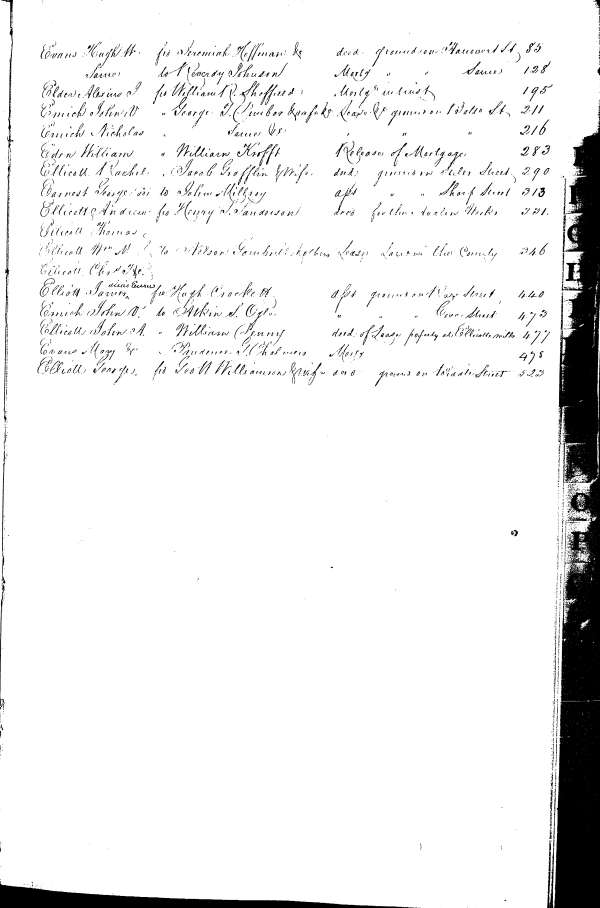 Evans Hugh W. fr Jeremiah Hoffman &c deed ground on Harcourt St 83
Same to Reverdy Johnson Mortg " " Same 128
Elder Alexius J fr William R. Sheffield Mortg in trust 195
Emich John V " George T. Lease &c ground on St 211
Emich Nicholas " Same &c " " " 216
Eden William " William Krofft Release of Mortgage 283
Ellicott Rachel " Jacob Grofflin & Wife deed ground on Street 290
Earnest George to John Millroy asst " " Sharp Street 313
Ellicott Andrew fr Henry S. Sanderson deed for the 321
Ellicott Thomas
Ellicott Wm M to Nelson Lease Land in the County 346
Ellicott Chs T &c
Elliott James fr Hugh Crockett asst ground on Street 440
Emich John V. to Atkin S. " " Street 473
Ellicott John A. " William Penny deed of Lease property at Ellicotts mills 477
Evans Mary &c " Prudence G. Chalmers Mortg 478
Elliott George fr Geo W Williamson & wife deed ground on Street 523
O